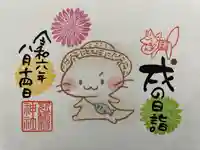 戌の日詣
令和六年
八月十四日